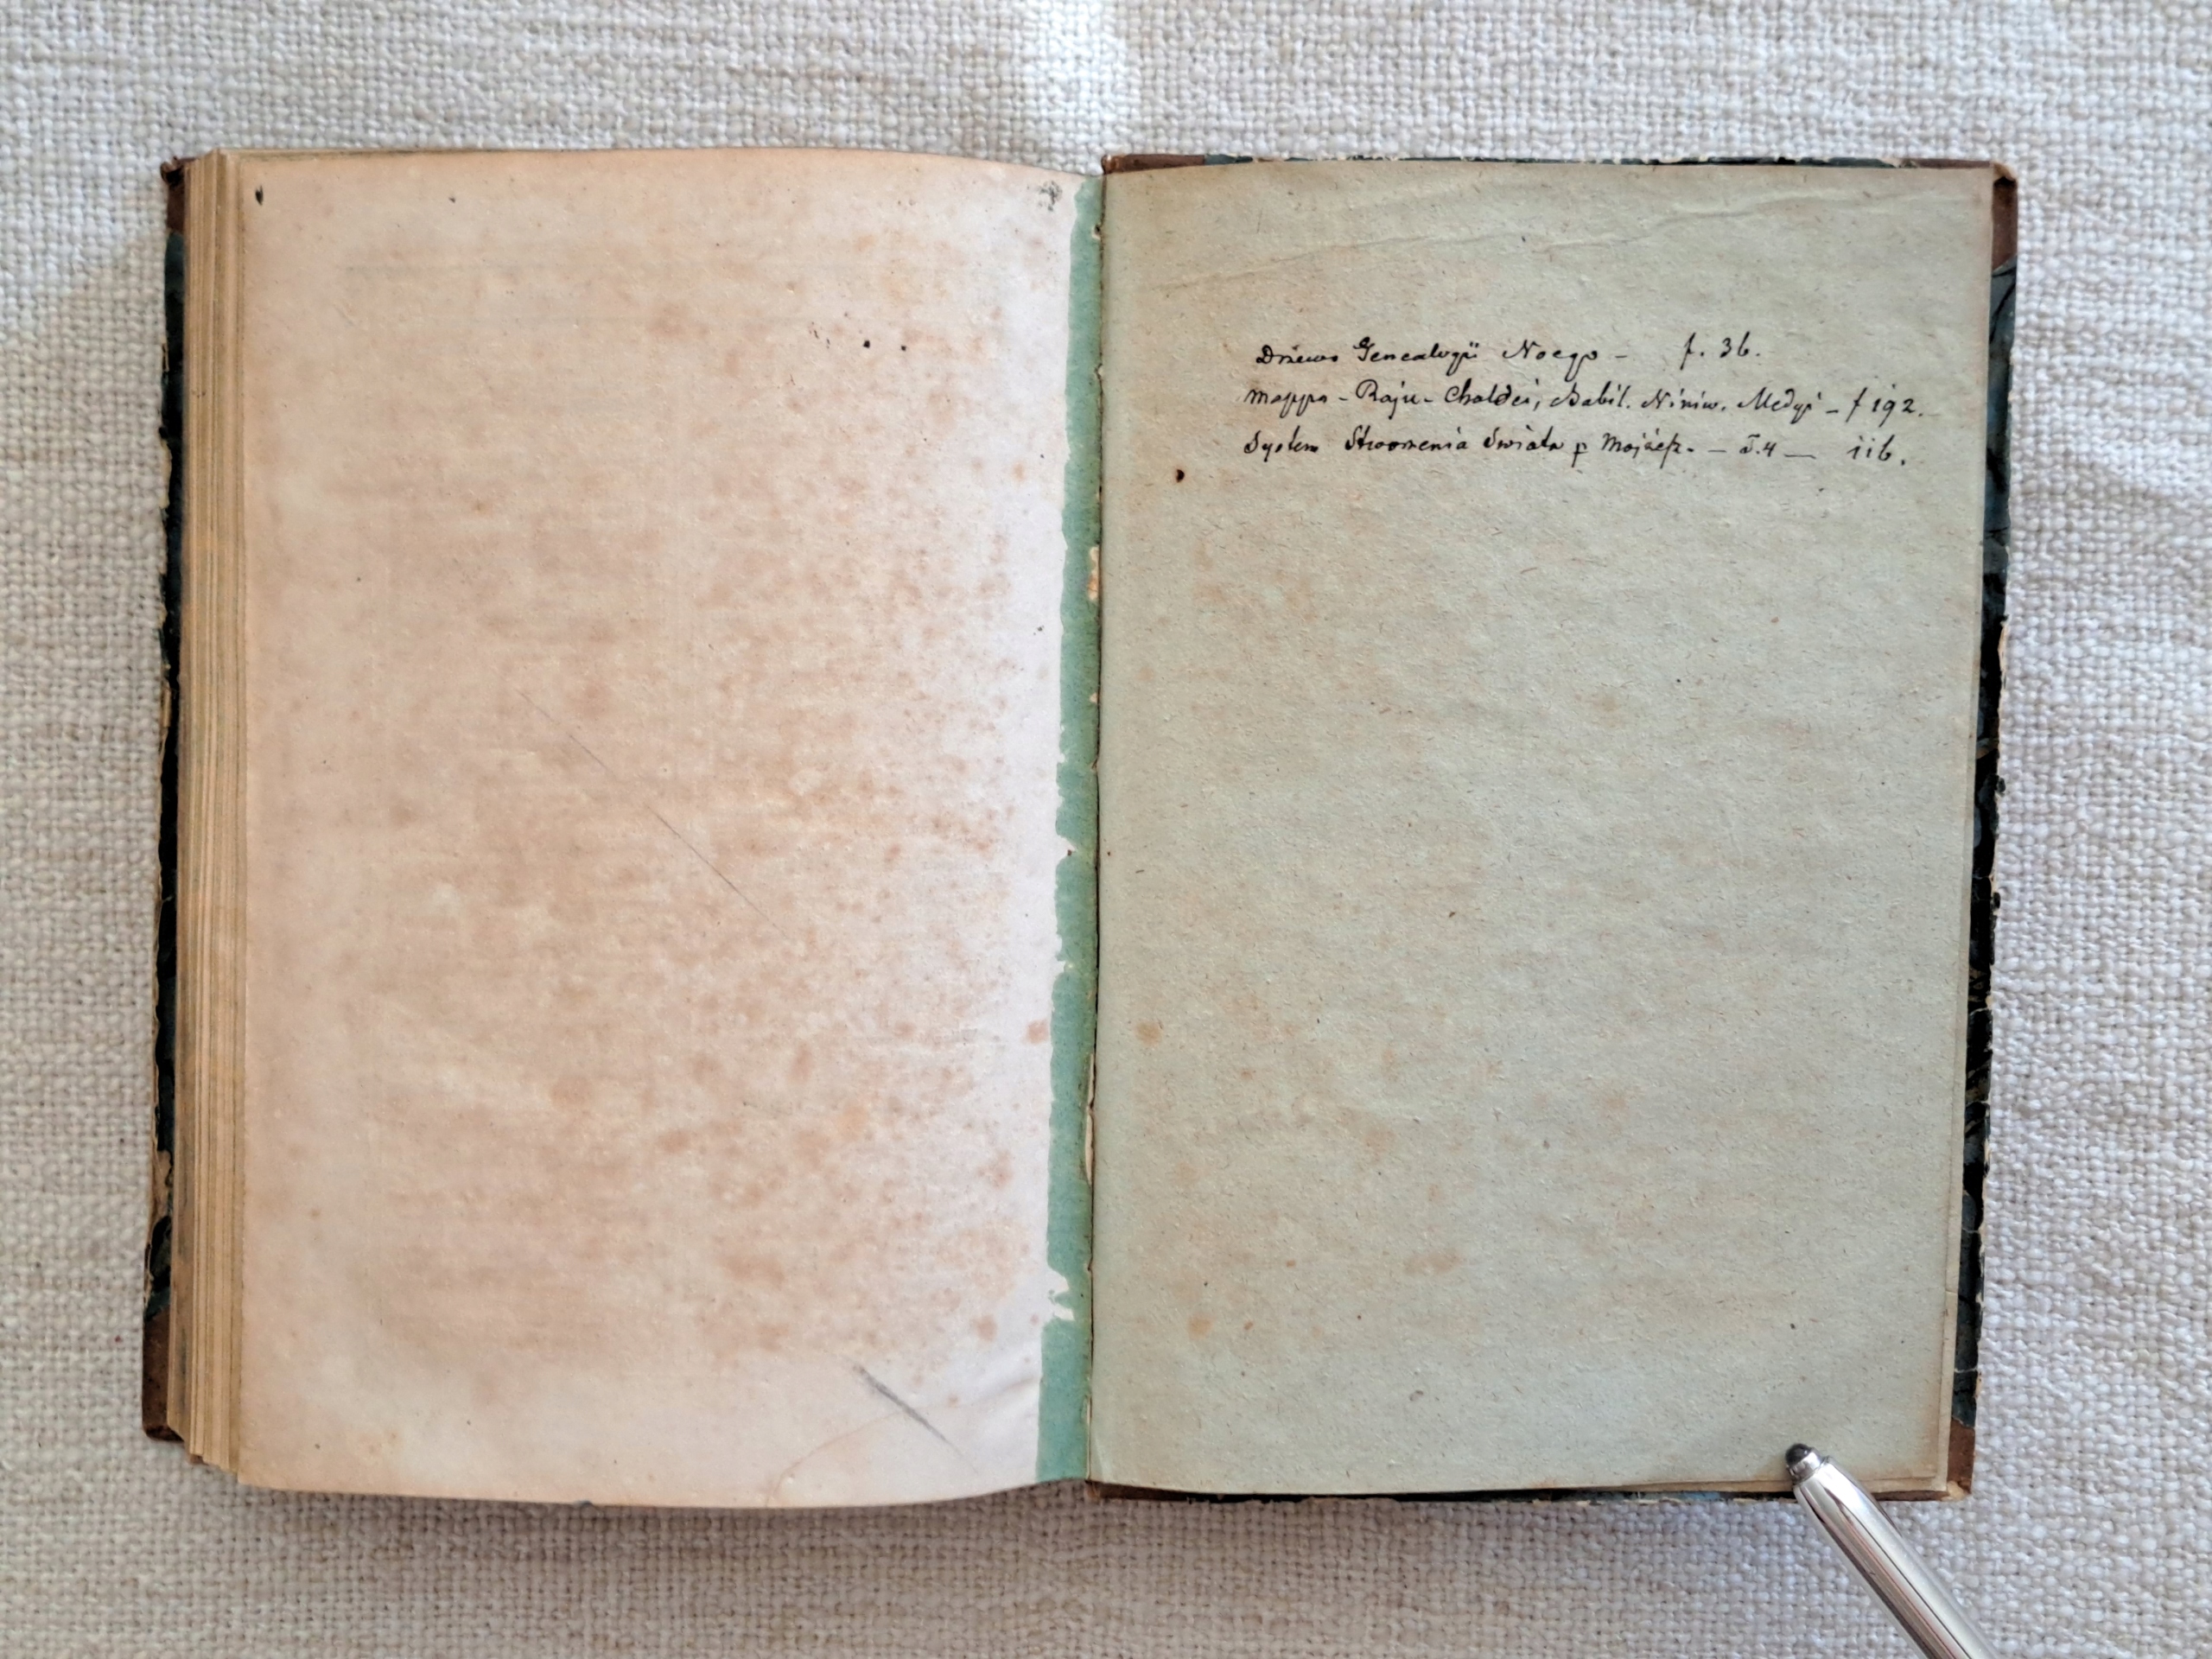 Drzewo Genealogii Noego - f. 36.
Mappa - Raju - Chaldei, Babil. Niniw. Medyi - f 192.
System Stworzenia Swiata p Mojżesz. - T.4 — 116.